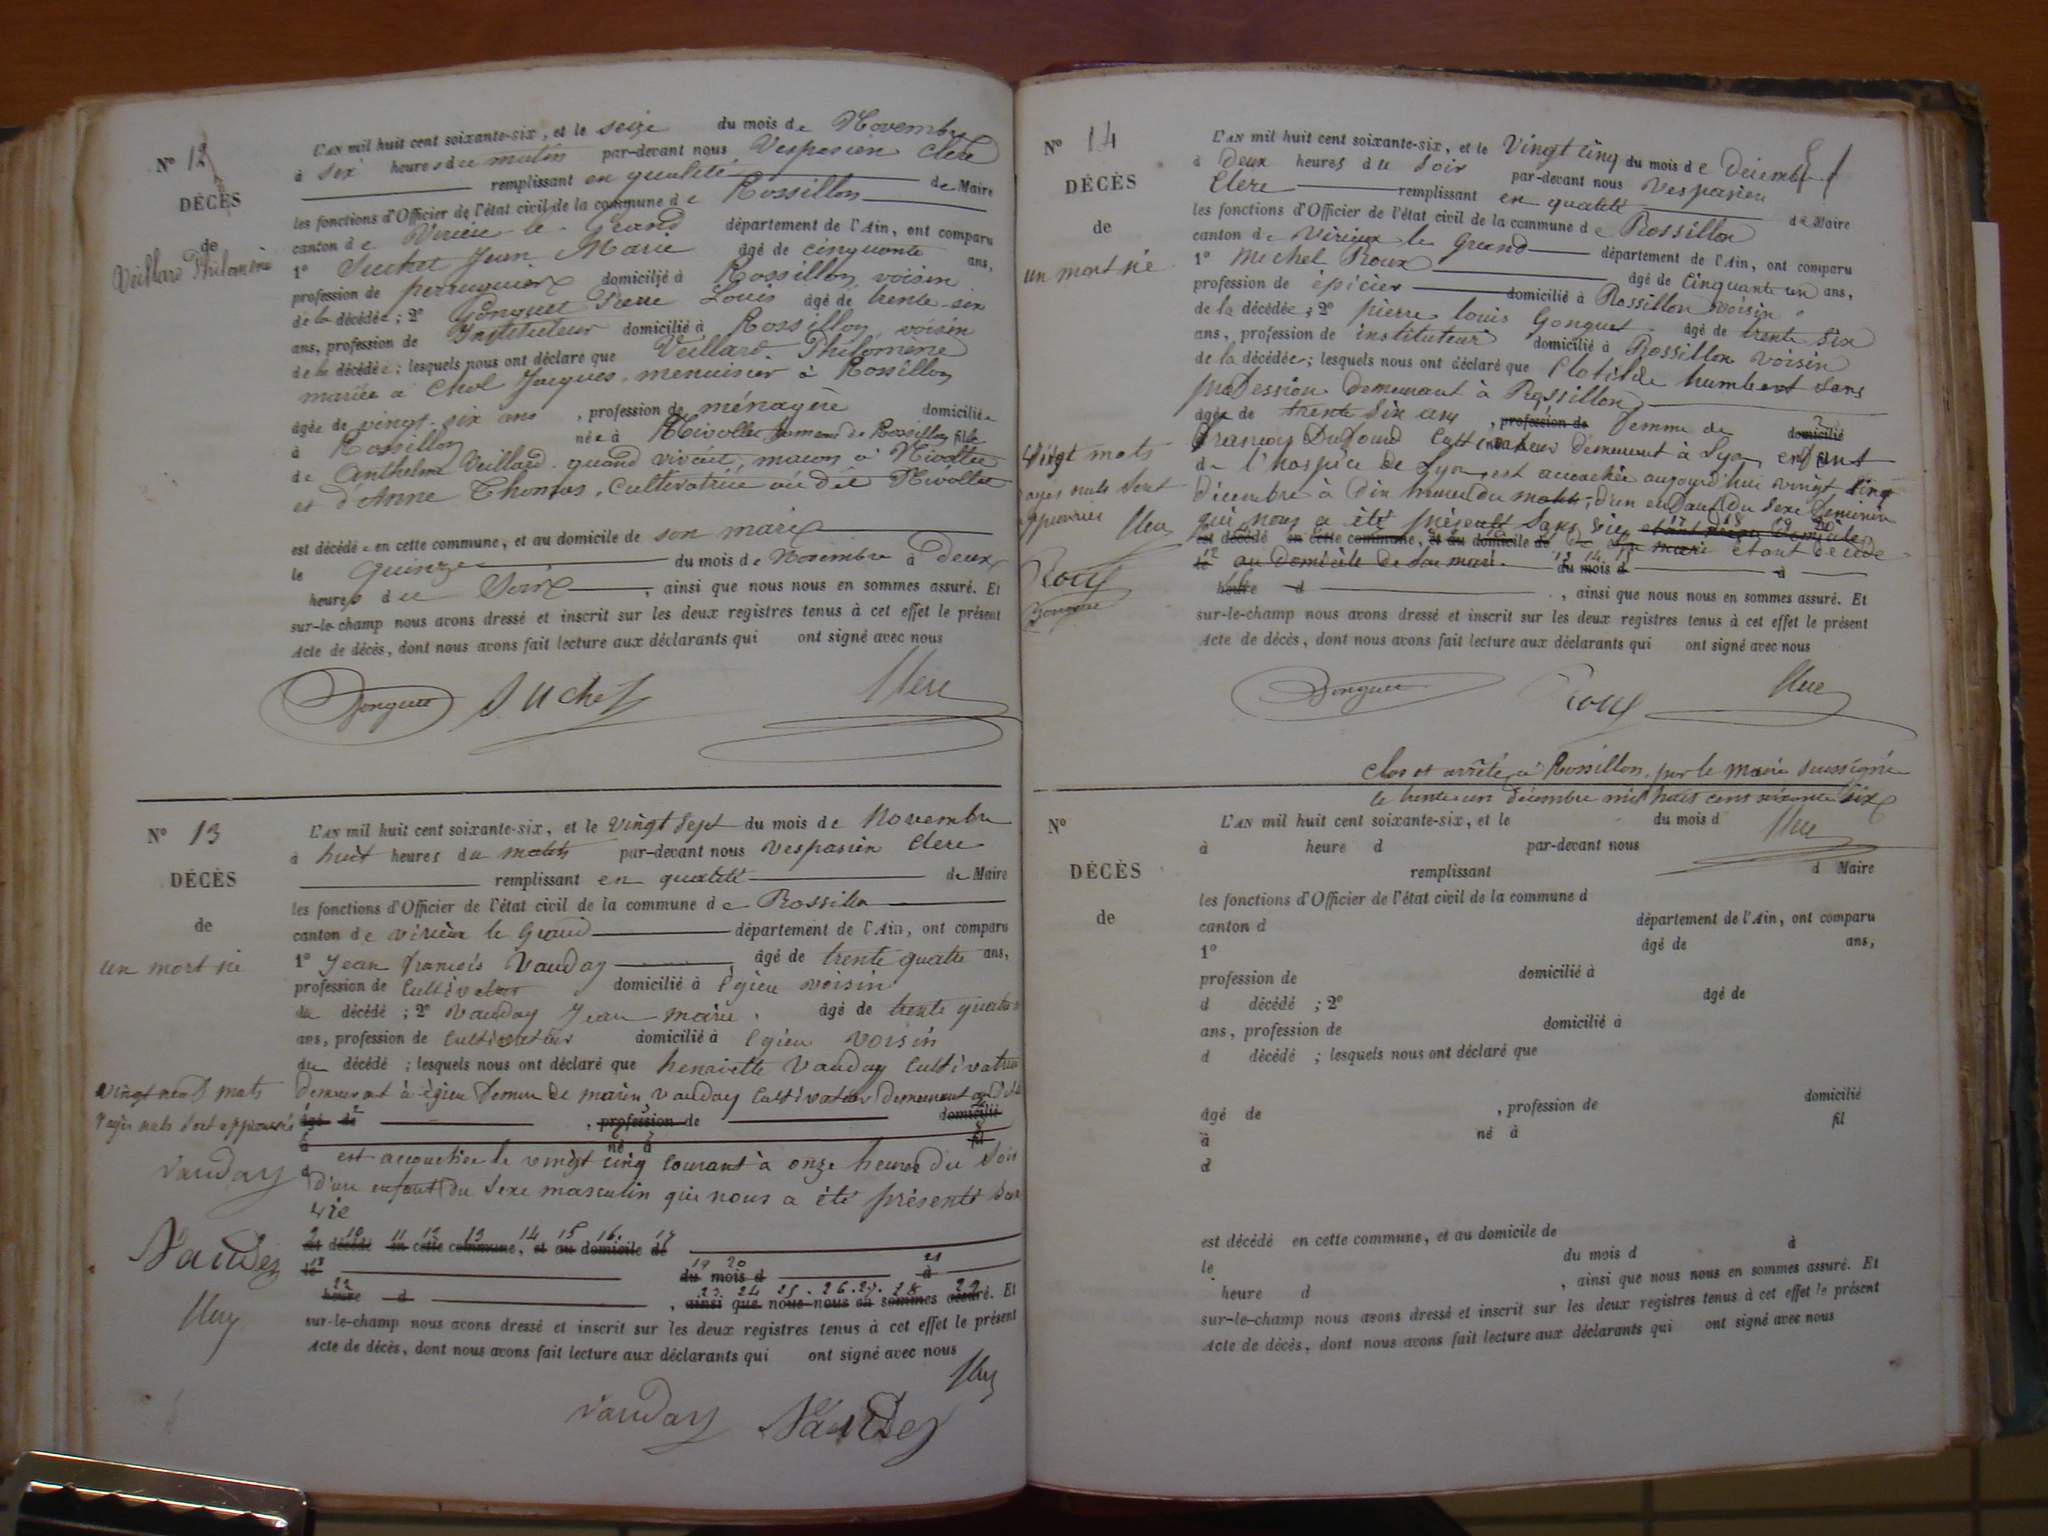 N° 12
DÉCÈS
de
Veillard Philomène
L'AN mil huit cent soixante-six, et le seize du mois de Novembre
à six heures du matin par-devant nous Vespasien Clerc
remplissant en qualité de Maire
les fonctions d'Officier de l'état civil de la commune de Rossillon
canton de Virieu-le-Grand département de l'Ain, ont comparu
1° Suchet Jean Marie âgé de cinquante ans,
profession de perruquier domicilié à Rossillon voisin
de la décédée; 2° Gonguet Pierre Louis âgé de trente-six
ans, profession de Instituteur domicilié à Rossillon, voisin
de la décédée; lesquels nous ont déclaré que Veillard Philomène
mariée à Chol Jacques, menuisier à Rossillon
âgée de vingt-six ans, profession de ménagère domiciliée
à Rossillon née à Nivollet hameau de Rossillon fille
de Anthelme Veillard quand vivait, maçon à Nivollet
et d'Anne Thomas, cultivatrice au dit Nivollet
est décédée en cette commune, et au domicile de son mari
le quinze du mois de Novembre à deux
heures du Soir, ainsi que nous nous en sommes assuré. Et
sur-le-champ nous avons dressé et inscrit sur les deux registres tenus à cet effet le présent
Acte de décès, dont nous avons fait lecture aux déclarants qui ont signé avec nous
Gonguet Suchet Clerc
N° 13
DÉCÈS
de
un mort né
L'AN mil huit cent soixante-six, et le vingt sept du mois de Novembre
à huit heures du matin par-devant nous vespasien Clerc
remplissant en qualité de Maire
les fonctions d'Officier de l'état civil de la commune de Rossillon
canton de virieu le grand département de l'Ain, ont comparu
1° Jean francois Vauday âgé de trente quatre ans,
profession de Cultivateur domicilié à Egieu voisin
du décédé; 2° Vauday Jean marie. âgé de trente quatre
ans, profession de Cultivateur domicilié à Egieu voisin
du décédé; lesquels nous ont déclaré que henriette Vauday Cultivatrice
demeurant à Egieu femme de marin Vauday Cultivateur demeurant
âgé de, profession de domicilié
à né à fil
est accouchée le vingt cinq courant à onze heures du Soir
d'un enfant du Sexe masculin qui nous a été présenté sans
vie
vingt neuf mots
rayés nuls sont approuvés
Vauday
Vauday
Clerc
9 10 11 12 13 14 15 16 17
est décédé en cette commune, et au domicile de
18 19 20 21
le du mois d à
22 23 24 25 26 27 28 29
heure d, ainsi que nous nous en sommes assuré. Et
sur-le-champ nous avons dressé et inscrit sur les deux registres tenus à cet effet le présent
Acte de décès, dont nous avons fait lecture aux déclarants qui ont signé avec nous
Clerc
Vauday Vauday
N° 14
DÉCÈS
de
un mort né
L'AN mil huit cent soixante-six, et le Vingt cinq du mois de décembre
à deux heures du Soir par-devant nous Vespasien
Clerc remplissant en qualité de Maire
les fonctions d'Officier de l'état civil de la commune de Rossillon
canton de Virieu le Grand département de l'Ain, ont comparu
1° Michel Roux âgé de Cinquante un ans,
profession de épicier domicilié à Rossillon voisin
de la décédée; 2° pierre louis Gonguet âgé de trente six
ans, profession de instituteur domicilié à Rossillon voisin
de la décédée; lesquels nous ont déclaré que Clotilde humbert sans
profession demeurant à Rossillon
âgée de trente six ans, profession de femme de domicilié
françois Dufour Cultivateur demeurant à Lyon, enfant
de l'hospice de Lyon est accouchée aujourd'hui vingt cinq
Décembre à dix heures du matin, d'un enfant du Sexe féminin
qui nous a été présenté Sans vie
est décédé en cette commune, et au domicile de
le au Domicile de Son mari du mois d à
heure d, ainsi que nous nous en sommes assuré. Et
sur-le-champ nous avons dressé et inscrit sur les deux registres tenus à cet effet le présent
Acte de décès, dont nous avons fait lecture aux déclarants qui ont signé avec nous
Vingt mots
rayés nuls sont
approuvés Clerc
Roux
Gonguet
Gonguet Roux Clerc
Clos et arrêté à Rossillon, par le Maire soussigné
le trente-un décembre mil huit cent soixante six
Clerc
N°
DÉCÈS
de
L'AN mil huit cent soixante-six, et le du mois d
à heure d par-devant nous
remplissant d Maire
les fonctions d'Officier de l'état civil de la commune d
canton d département de l'Ain, ont comparu
1° âgé de ans,
profession de domicilié à
d décédé ; 2° âgé de
ans, profession de domicilié à
d décédé ; lesquels nous ont déclaré que
âgé de , profession de domicilié
à né à fil
d
est décédé en cette commune, et au domicile de
le du mois d à
heure d , ainsi que nous nous en sommes assuré. Et
sur-le-champ nous avons dressé et inscrit sur les deux registres tenus à cet effet le présent
Acte de décès, dont nous avons fait lecture aux déclarants qui ont signé avec nous